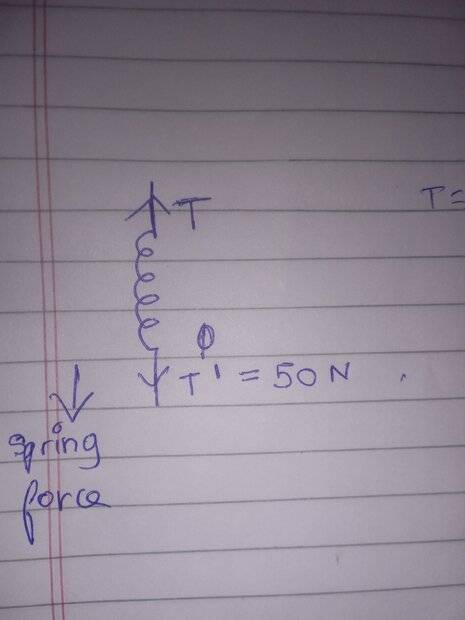 T
T =
T' = 50 N .
spring
force